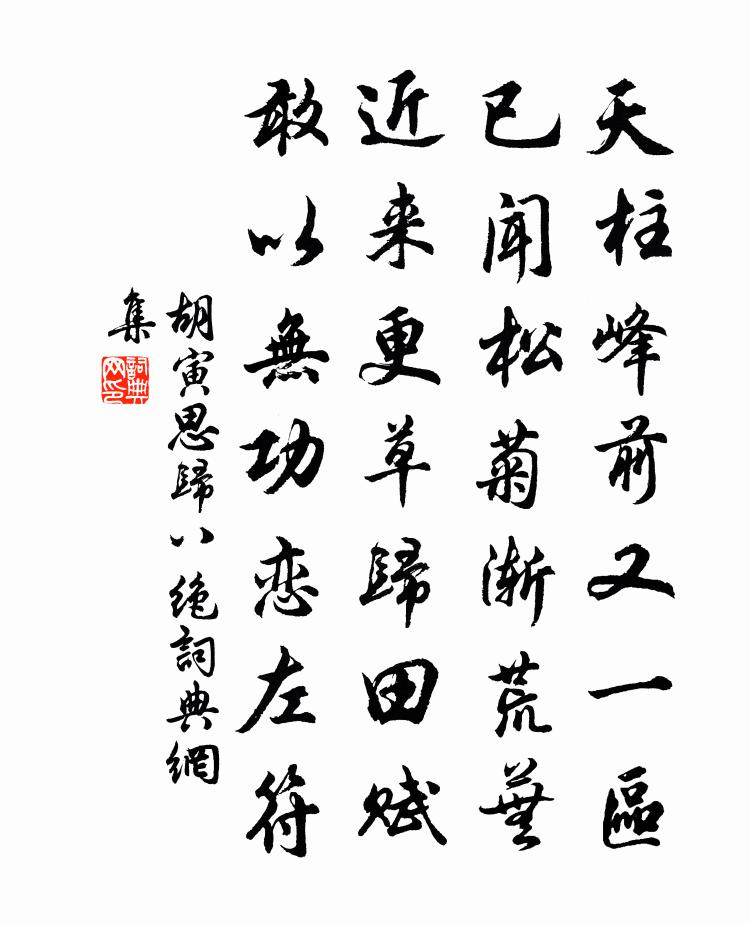 天柱峰前又一區
已聞松菊漸荒蕪
近来更草歸田賦
敢以無功恋左符
胡寅思歸八絶詞典網
集
詞典網印